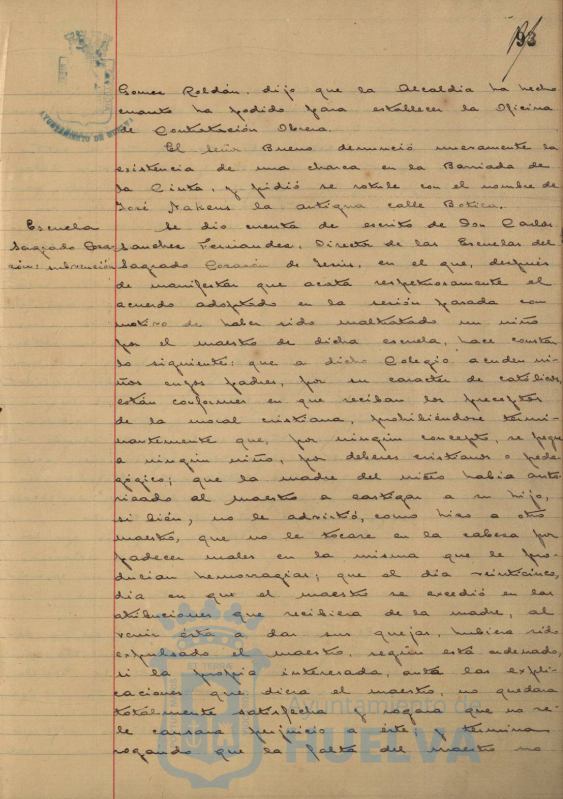 93
AYUNTAMIENTO DE HUELVA
Gomez Roldán, dijo que la Alcaldía ha hecho
cuanto ha podido para establecer la Oficina
de Contratación Obrera.
El señor Bueno denunció nuevamente la
existencia de una charca en la Barriada de
la Cinta, y pidió se rotule con el nombre de
José Nakens la antigua calle Botica.
Escuela
Sagrado Cora-
zón: subvención
Se dio cuenta de escrito de Don Carlos
Sanchez Fernandez, Director de las Escuelas del
Sagrado Corazón de Jesús, en el que, después
de manifestar que acata respetuosamente el
acuerdo adoptado en la sesión pasada con
motivo de haber sido maltratado un niño
por el maestro de dicha escuela, hace constar
lo siguiente: que a dicho Colegio acuden ni-
ños cuyos padres, por su caracter de católicos,
están conformes en que reciban los preceptos
de la moral cristiana, prohibiéndose termi-
nantemente que, por ningún concepto, se pegue
a ningún niño, por deberes cristianos o peda-
gógico; que la madre del niño había auto-
rizado al maestro a castigar a su hijo,
si bién, no le advirtió, como hizo a otro
maestro, que no le tocare en la cabeza por
padecer males en la misma que le pro-
ducían hemorragias; que el día veinticinco,
día en que el maestro se excedió en las
atribuciones que recibiera de la madre, al
venir ésta a dar sus quejas, hubiera sido
expulsado el maestro, según está ordenado,
si la propia interesada, ante las expli-
caciones que diera el maestro, no quedara
totalmente satisfecha y rogara que no se
le causara perjuicio a éste; y termina
rogando que la falta del maestro no
Ayuntamiento de
HUELVA